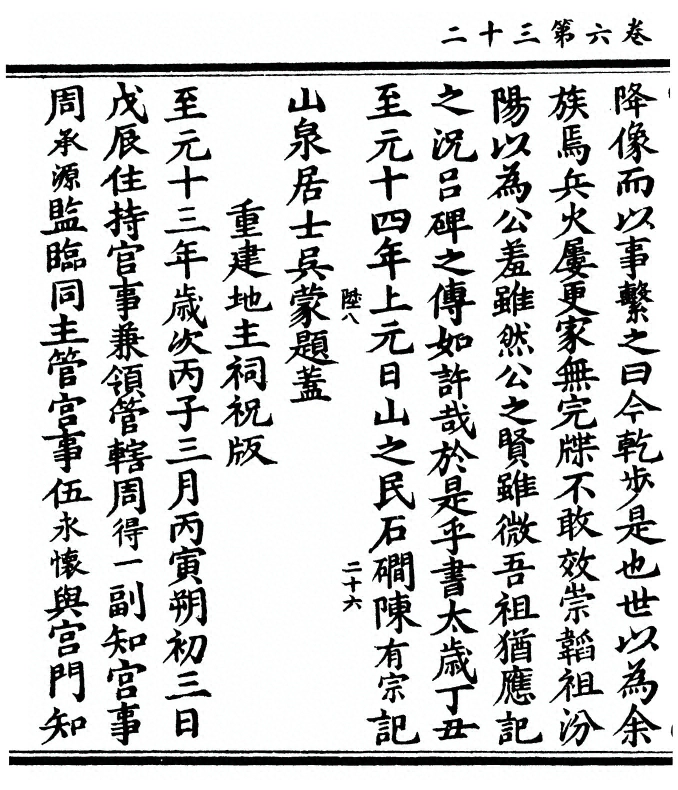 卷六第三十二
降像而以事繫之曰今乾步是也世以為余
族焉兵火屢更家無完牒不敢效崇韜祖汾
陽以為公羞雖然公之賢雖微吾祖猶應記
之況呂碑之傳如許哉於是乎書太歲丁丑
至元十四年上元日山之民石磵陳有宗記
陸八
二十六
山泉居士吳蒙題蓋
重建地主祠祝版
至元十三年歲次丙子三月丙寅朔初三日
戊辰住持官事兼領管轄周得一副知宮事
周承源監臨同主管宮事伍永懷與宮門知